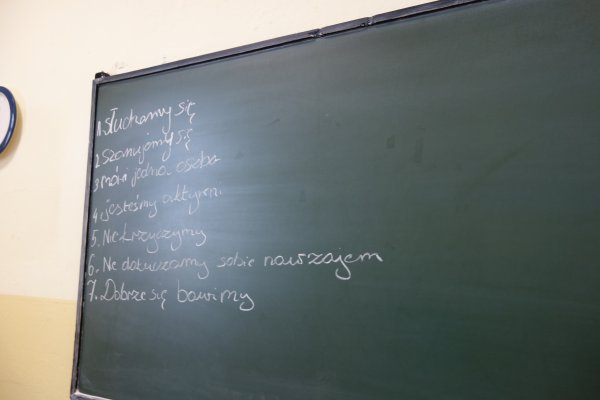 1. słuchamy się
2. szanujemy się
3 mówi jedna osoba
4. jesteśmy aktywni
5. Nie krzyczymy
6. Nie dokuczamy sobie nawzajem
7. Dobrze się bawimy